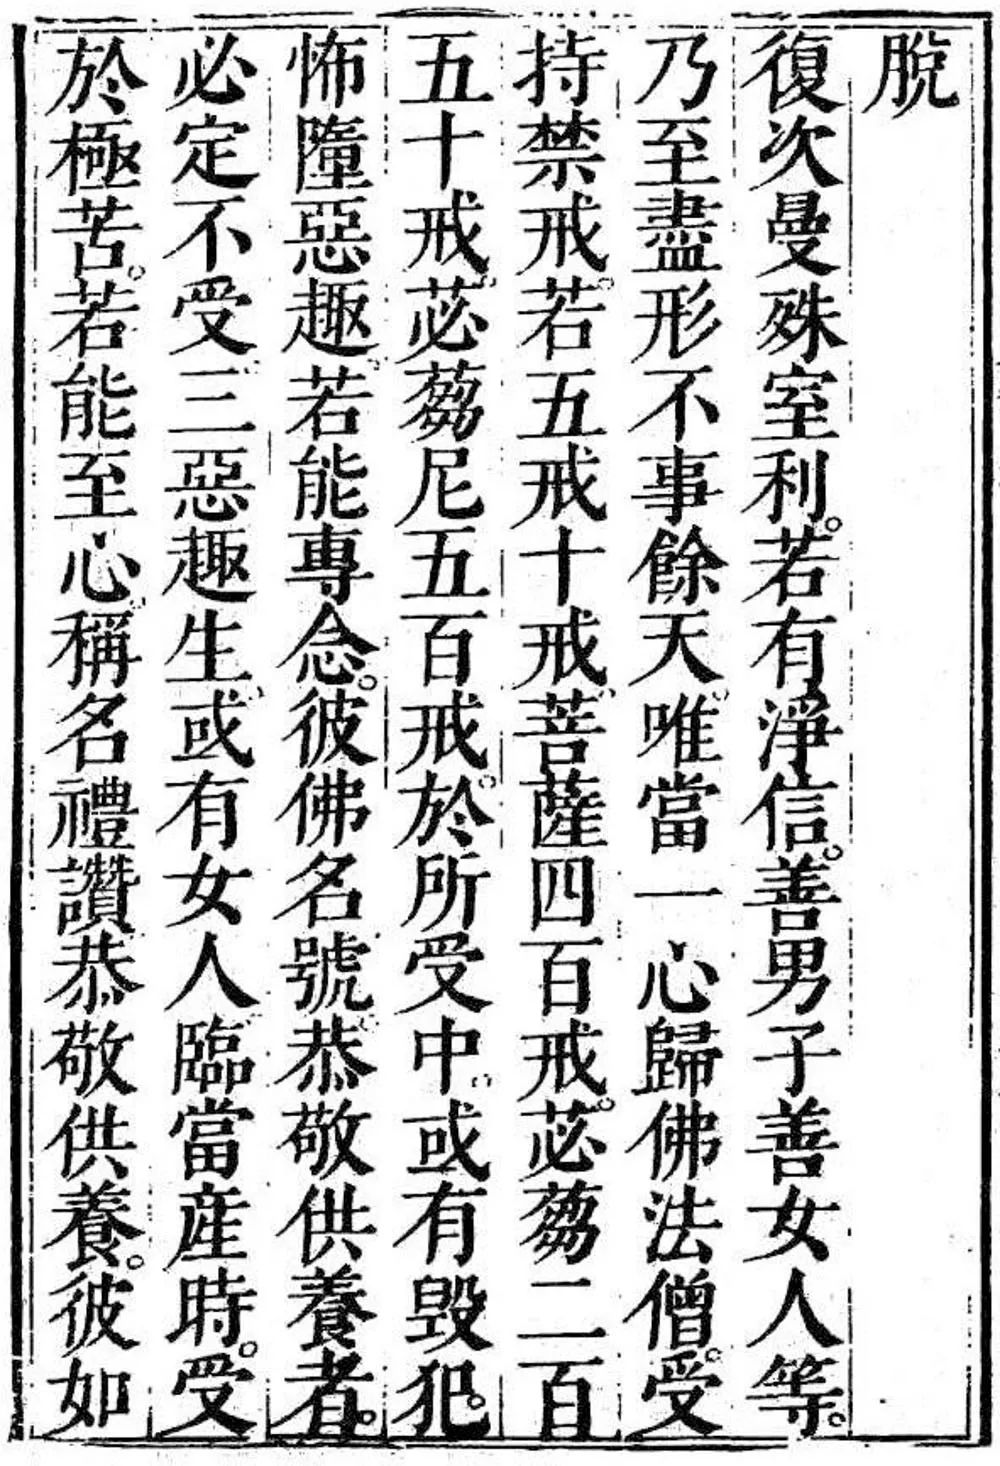 脫
復次曼殊室利。若有淨信。善男子善女人等。
乃至盡形不事餘天唯當一心歸佛法僧。受
持禁戒。若五戒十戒菩薩四百戒。苾蒭二百
五十戒。苾蒭尼五百戒。於所受中或有毀犯。
怖墮惡趣。若能專念。彼佛名號。恭敬供養者。
必定不受三惡趣生或有女人臨當產時。受
於極苦。若能至心稱名禮讚恭敬供養。彼如